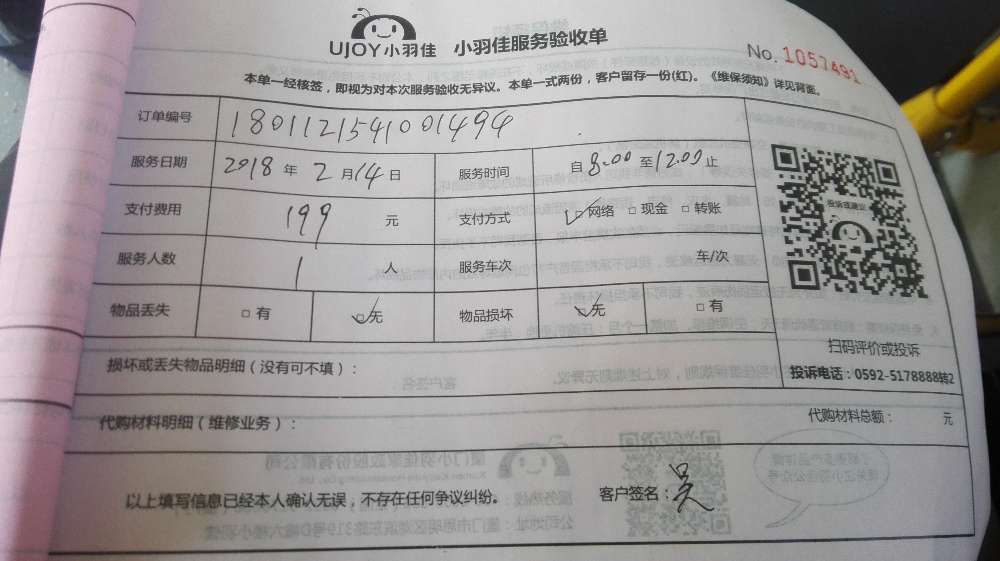 UJOY小羽佳 小羽佳服务验收单
No. 1057491
本单一经核签，即视为对本次服务验收无异议。本单一式两份，客户留存一份(红)。《维保须知》详见背面。
订单编号 1801121541001494
服务日期 2018 年 2 月 14 日 服务时间 自 8:00 至 12:00 止
支付费用 199 元 支付方式 ☑网络 □现金 □转账
服务人数 1 人 服务车次 车/次
物品丢失 □有 ☑无 物品损坏 ☑无 □有
投诉或建议
扫码评价或投诉
投诉电话：0592-5178888转2
损坏或丢失物品明细（没有可不填）：
代购材料明细（维修业务）： 代购材料总额： 元
以上填写信息已经本人确认无误，不存在任何争议纠纷。 客户签名：吴